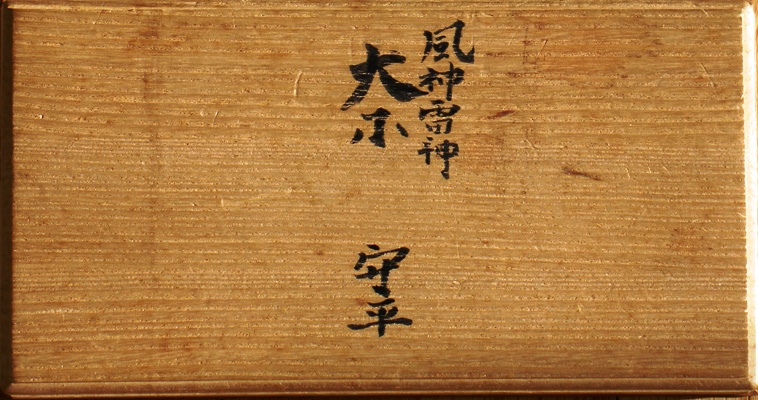 風神雷神
大小
守平